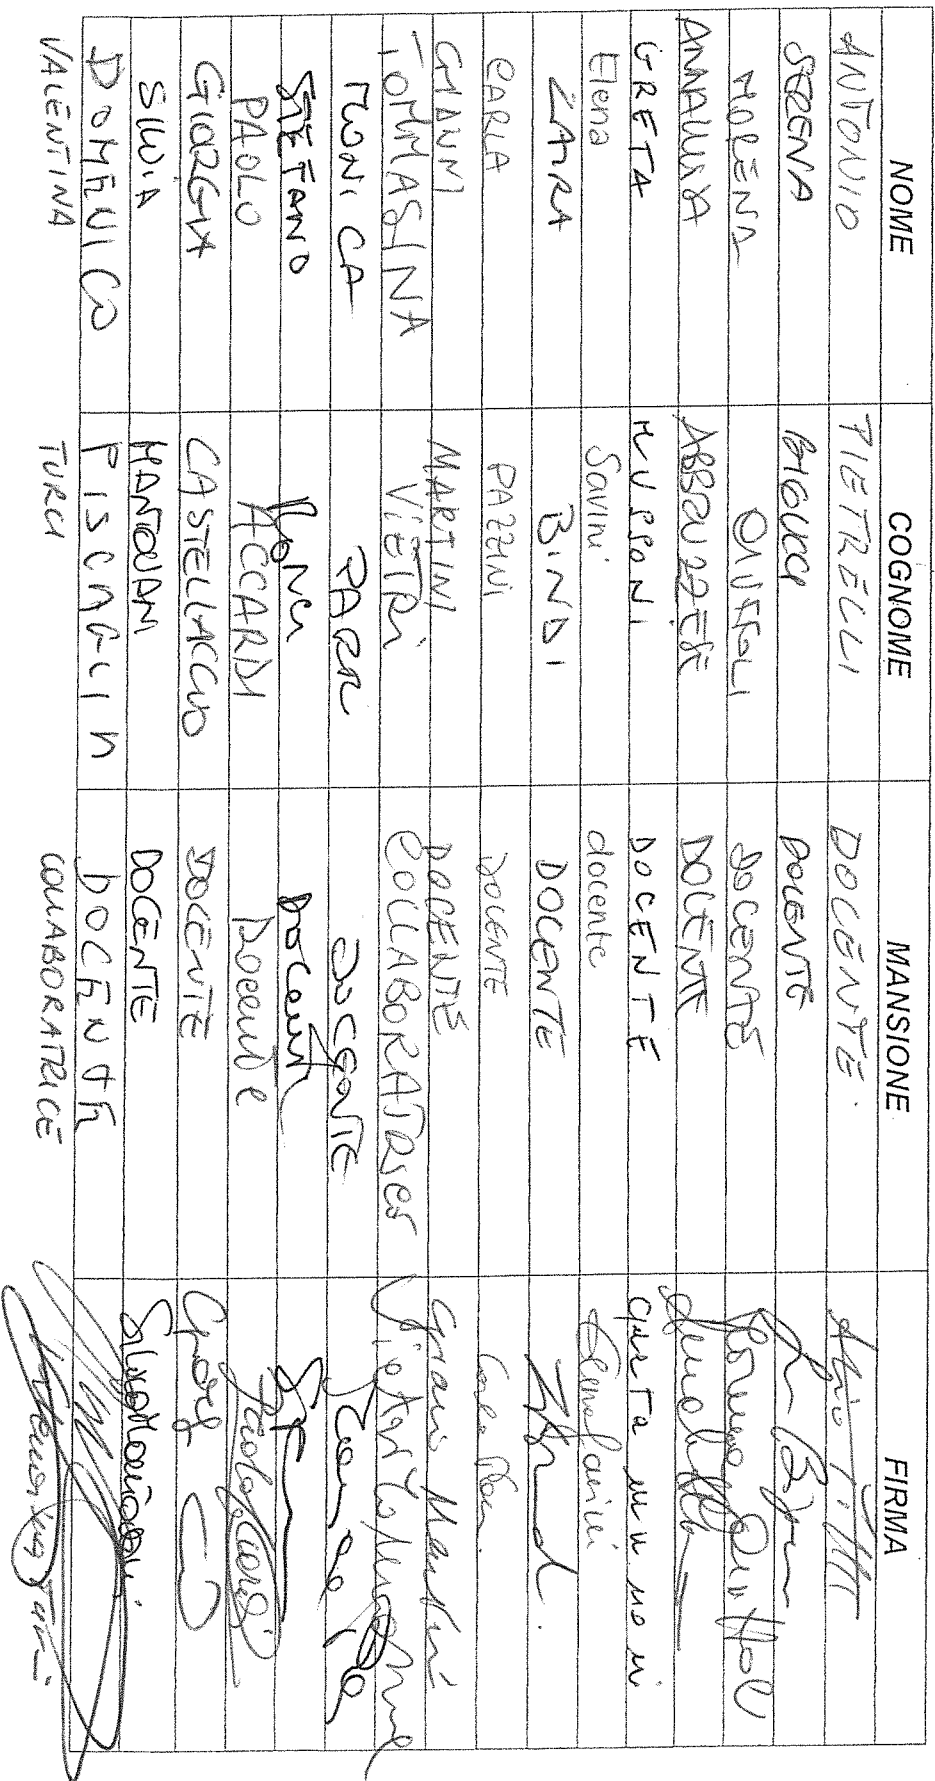 NOME COGNOME MANSIONE FIRMA
ANTONIO PIETRELLI DOCENTE.
SERENA DOCENTE
MORENA OLIVIERI DOCENTE
ANNALISA ABBRUZZESE DOCENTE
GRETA MUSSONI DOCENTE Greta Mussoni
Elena Savini docente Elena Savini
ZAIRA BINDI DOCENTE
CARLA PAZZINI DOCENTE
GIANNI MARTINI DOCENTE Gianni Martini
TOMMASINA VIETRI COLLABORATRICE Vietri Tommasina
MONICA PARR DOCENTE
STEFANO RONCI DOCENTE
PAOLO ACCARDI Docente
GIORGIA CASTELLACCIO DOCENTE
SILVIA MANTOVANI DOCENTE Silvia Mantovani
DOMENICO PISCAGLIA DOCENTE
VALENTINA TURCI COLLABORATRICE